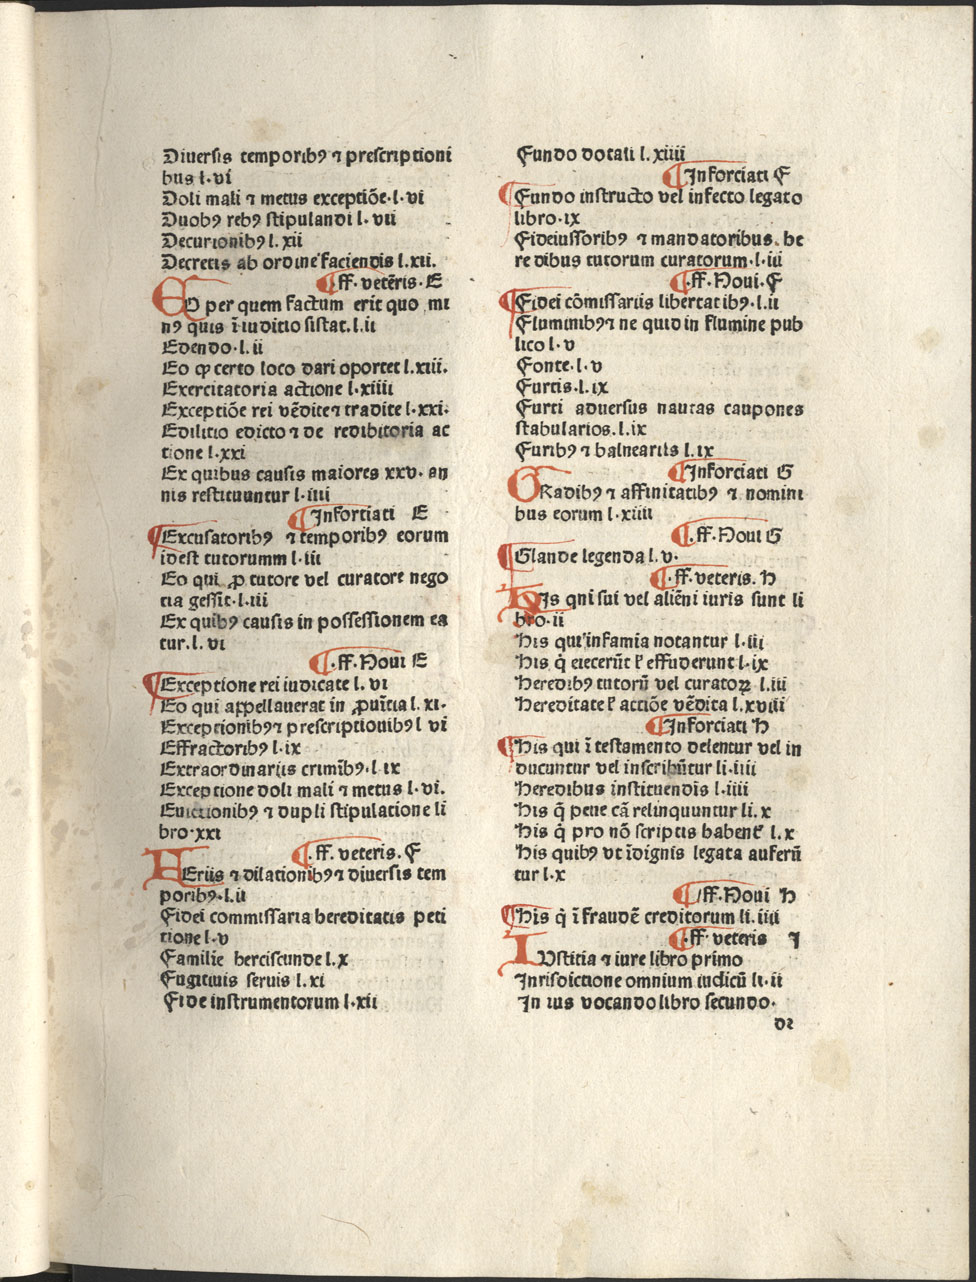 Diuersis temporibꝯ ⁊ prescriptioni
bus l·vi
Doli mali ⁊ metus exceptiõe·l·vi
Duobꝯ rebꝯ stipulandi l·vii
Decurionibꝯ l.xii
Decretis ab ordine faciendis l.xii.
¶.ff.veteris.E
EO per quem factum erit quo mi
nꝯ quis ĩ iuditio sistat.l.ii
Edendo·l.ii
Eo ꝙ certo loco dari oportet l.xiii.
Exercitatoria actione l·xiiii
Exceptiõe rei vẽdite⁊ tradite l·xxi.
Edilitio edicto ⁊ de redibitoria ac
tione l·xxi
Ex quibus causis maiores xxv·an
nis restituuntur l·iiii
¶Inforciati E
¶Excusatoribꝯ ⁊ temporibꝯ eorum
idest tutorumm l·iii
Eo qui ꝓ tutore vel curatore nego
tia gessit·l·iii
Ex quibꝯ causis in possessionem ea
tur.l.vi
¶.ff.Noui E
¶Exceptione rei iudicate l.vi
Eo qui appellauerat in ꝓuĩtia l.xi.
Exceptionibꝯ⁊ prescriptionibꝯ l vi
Effractoribꝯ l·ix
Extraordinariis crimĩbꝯ·l ix
Exceptione doli mali ⁊ metus l·vi.
Euictionibꝯ ⁊ dupli stipulatione li
bro·xxi
¶.ff.veteris.F
FEriis ⁊ dilationibꝯ⁊ diuersis tem
poribꝯ·l.ii
Fidei commissaria hereditatis peti
tione l·v
Familie herciscunde l.x
Fugitiuis seruis l.xi
Fide instrumentorum l·xii
Fundo dotali l.xiiii
¶Inforciati F
¶Fundo instructo vel infecto legato
libro·ix
Fideiussoribꝯ ⁊ mandatoribus he
redibus tutorum curatorum·l·iii
¶.ff.Noui.F
¶Fidei cõmissariis libertatibꝯ·l.ii
Fluminibꝯ⁊ ne quid in flumine pub
lico l·v
Fonte·l·v
Furtis·l.ix
Furti aduersus nautas caupones
stabularios.l.ix
Furibꝯ ⁊ balneariis l.ix
¶Inforciati G
GRadibꝯ ⁊ affinitatibꝯ ⁊ nomini
bus eorum l·xiiii
¶.ff.Noui G
¶Glande legenda l.v·
¶.ff.veteris.H
HIs qni sui vel aliẽni iuris sunt li
bro·ii
His qui infamia notantur l·iii
His q̃ eiecerũt l' effuderunt l·ix
Heredibꝯ tutorũ vel curatoꝝ l.iii
Hereditate l' actiõe vẽdita l.xviii
¶Inforciati H
¶His qui ĩ testamento delentur vel in
ducuntur vel inscribũtur li·iiii
Heredibus instituendis l·iiii
His q̃ pene cã relinquuntur li.x
His q̃ pro nõ scriptis habent' l.x
His quibꝯ vt ĩdignis legata auferũ
tur l·x
¶.ff.Noui H
¶His q̃ ĩ fraudẽ creditorum li.iiii
¶.ff.veteris I
IUstitia ⁊ iure libro primo
Inrisdictione omnium iudicũ li·ii
In ius vocando libro secundo·